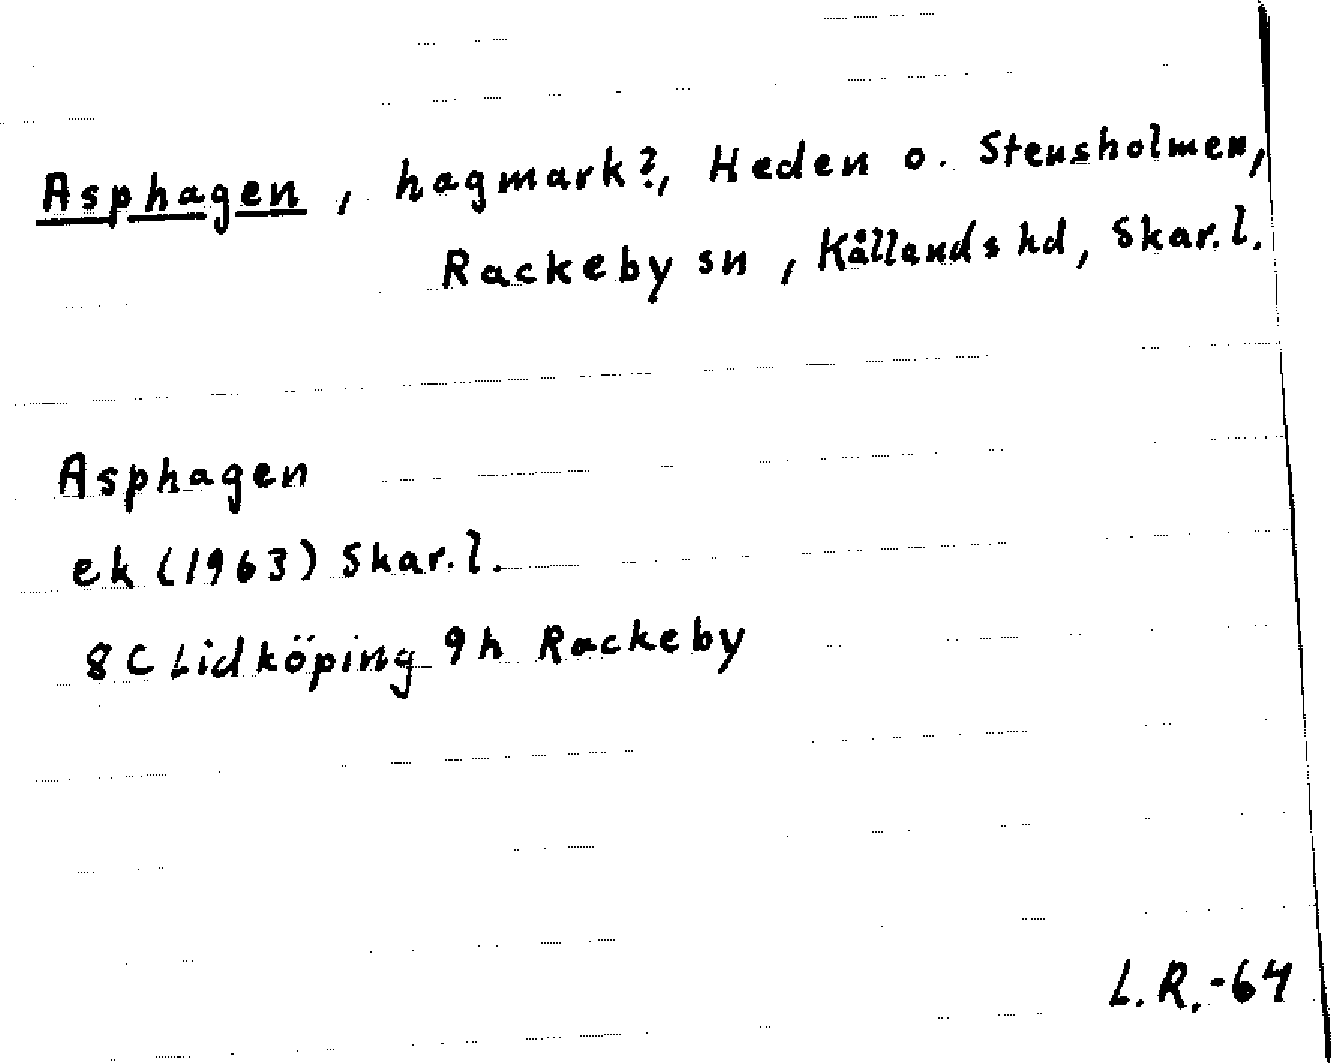 Asphagen, hagmark?, Heden o. Stensholmen,
Rackeby sn, Kållands hd, Skar.l.
Asphagen
ek (1963) Skar.l.
8C Lidköping 9h Rackeby
L.R.-64